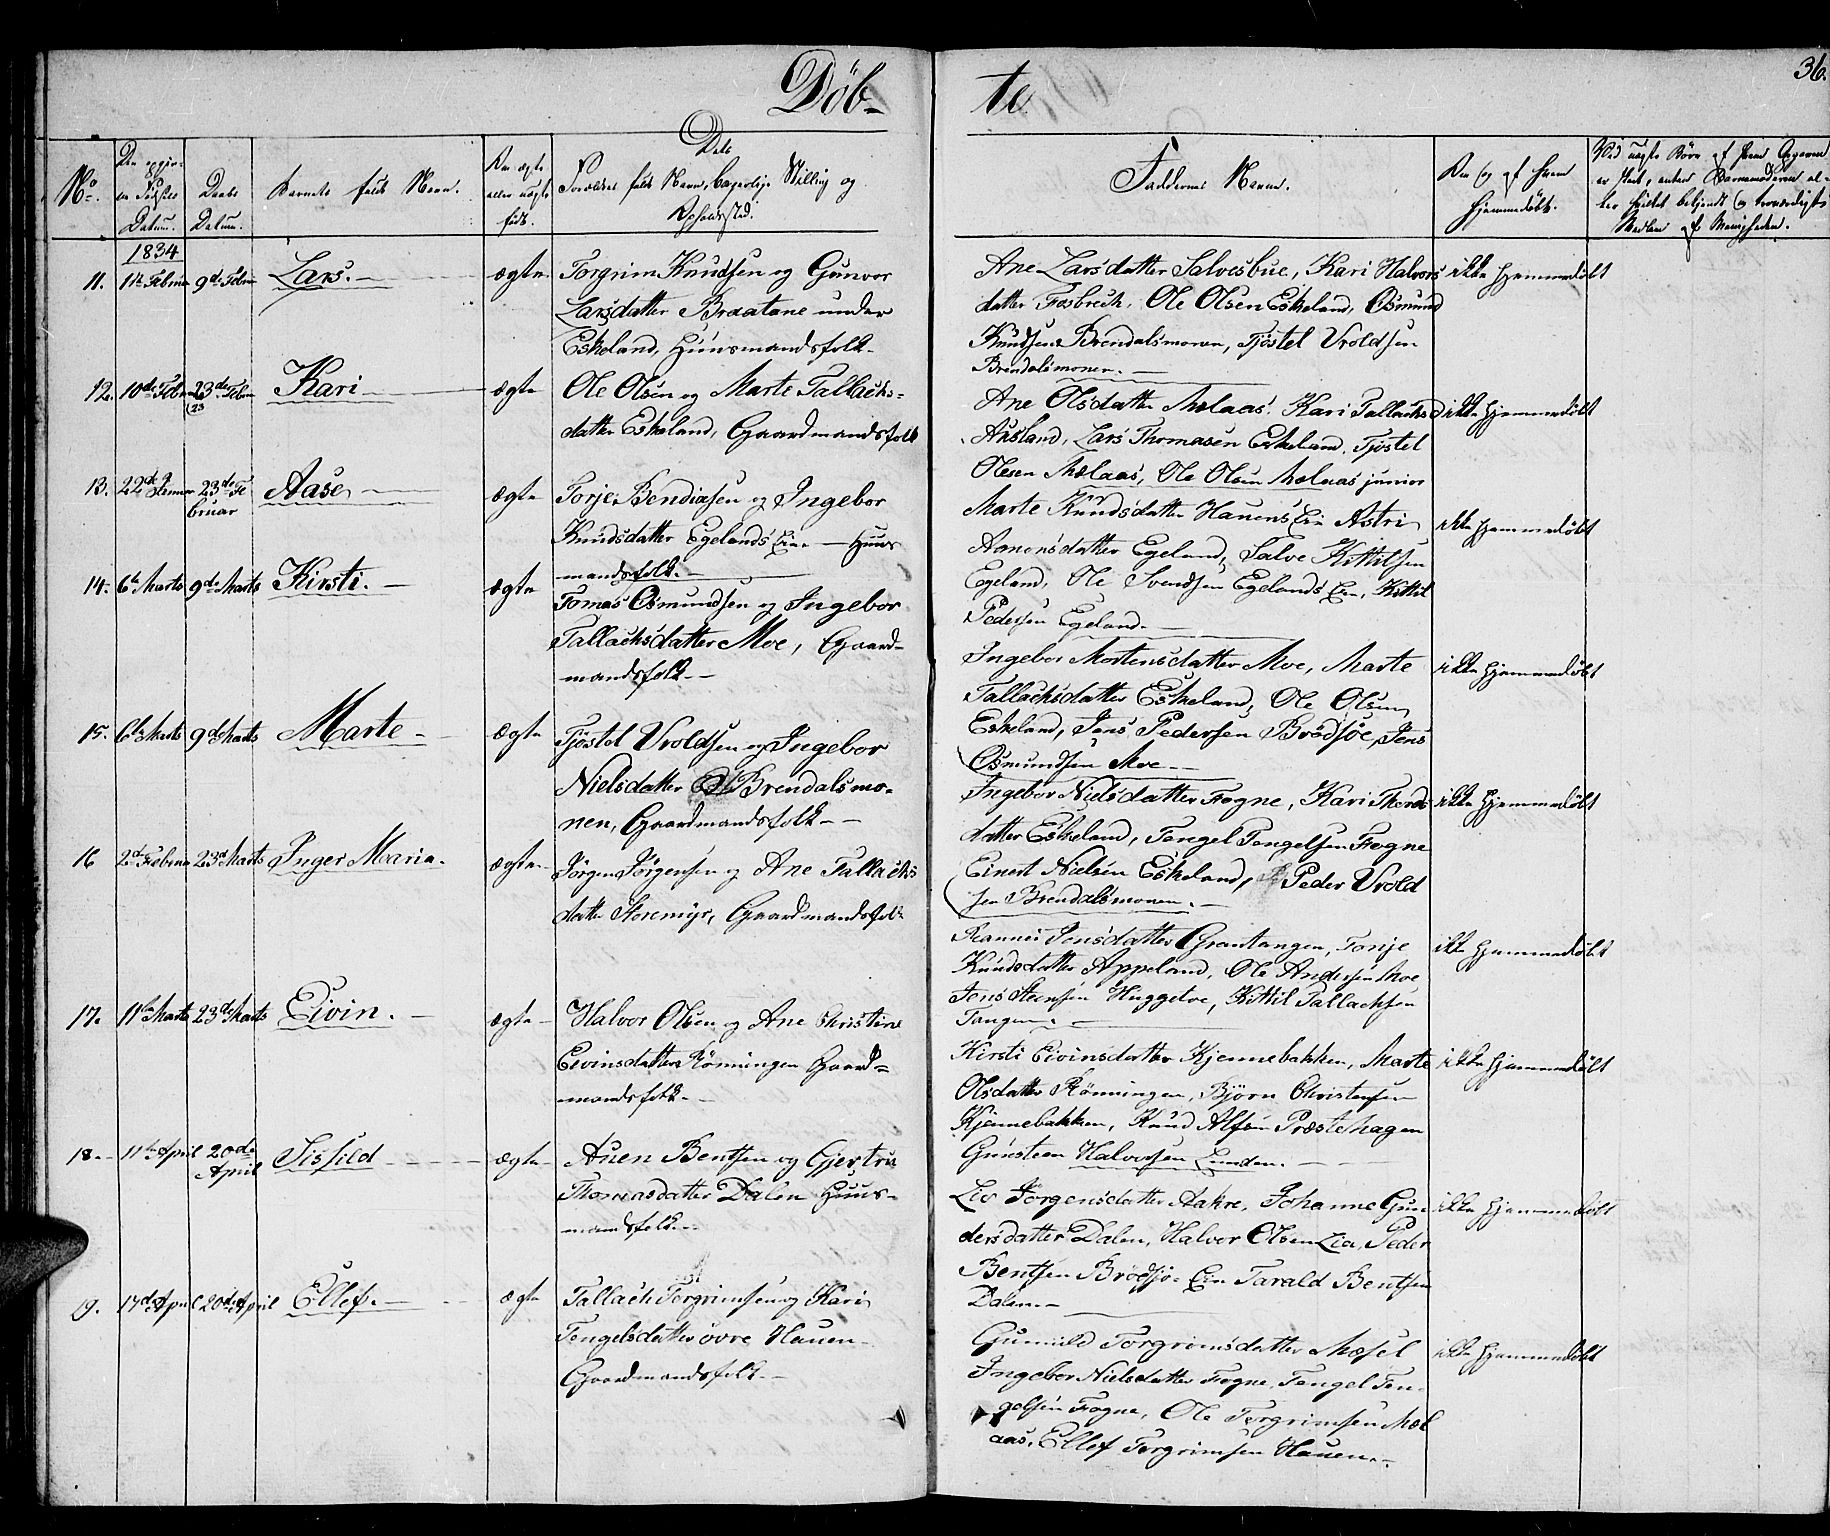 Döb-
te.
36.
No.
Den opgiv-
ne Födsels
Datum.
Daabs
Datum.
Barnets fulde Navn.
Om ægte
eller uægte
født.
Dets
Forældres fulde Navn, borgerlige Stilling og
Opholdssted.
Faddernes Navne.
Om og af hvem
hjemmedøbt.
1834
11. 11te Februar 9de Februar Lars. ægte
Torgrim Knudsen og Gunvor
Larsdatter Braatane under
Eskeland, Huusmandsfolk.
Ane Larsdatter Salvesbue, Kari Halvors
datter Fosbrech, Ole Olsen Eskeland, Osmund
Knudsen Brendalsmonen, Tjöstel Vroldsen
Brendalsmonen.
ikke hjemmedøbt
12. 10de Februar 23de Februar Kari ægte
Ole Olsen og Marte Tallacks-
datter Eskeland, Gaardmandsfolk
Ane Olsdatter Mælaas. Kari Tallacksd
Aasland, Lars Thomasen Eskeland, Tjöstel
Olesen Mælaas, Ole Olsen Mælaas junior
ikke hjemmedøbt
13. 22de Januar 23de Fe
bruar
Aase ægte
Torje Bendixsen og Ingebor
Knudsdatter Egelands Eie - Huus
mandsfolk.
Marte Knudsdatter Hauens Eie Astri
Aanensdatter Egeland, Salve Kittilsen
Egeland, Ole Svendsen Egelands Eie, Kittil
Pedersen Egeland.
ikke hjemmedøbt
14. 6te Marts 9de Marts Kirsti. ægte
Tomas Osmundsen og Ingebor
Tallacksdatter Moe, Gaard-
mandsfolk.
Ingebor Mortensdatter Moe, Marte
Tallacksdatter Eskeland, Ole Olsen
Eskeland, Jens Pedersen Brødsjøe, Jens
Osmundsen Moe
ikke hjemmedøbt
15. 6te Marts 9de Marts Marte ægte
Tjöstel Vroldsen og Ingebor
Nielsdatter Brendalsmo-
nen, Gaardmandsfolk
Ingebor Nielsdatter Fogne, Kari Thords
datter Eskeland, Tengel Tengelsen Fogne
Einert Nielsen Eskeland, Peder Vrold
sen Brendalsmonen.
ikke hjemmedøbt
16 2de Februar 23de Marts Inger Maria. ægte
Jörgen Jörgensen og Ane Tallacks
datter Storemyr, Gaardmandsfolk
Jensdatter Grantangen, Tonje
Knudsdatter Appeland, Ole Andersen Moe
Jens Steensen Huggetve, Kittil Tallacksen
Tangen.
ikke hjemmedøbt
17. 11te Marts 23de Marts Eivin. ægte
Halvor Olsen og Ane Christine
Eivinsdatter Rönningen Gaard-
mandsfolk.
Kirsti Eivinsdatter Kjennebakken, Marte
Olsdatter Rönningen, Björn Christensen
Kjennebakken, Knud Alfsen Præstehagen
Gunsteen Halvorsen Lunden.
ikke hjemmedøbt
18. 11te April 20de
April
Sissild ægte
Auen Bentsen og Gjertru
Thomasdatter Dalen Huus-
mandsfolk.
Liv Jörgensdatter Aakre, Johanne Gun
dersdatter Dalen, Halvor Olsen Lia, Peder
Bentsen Brödsjö Eie Tarald Bentsen
Dalen.
ikke hjemmedøbt
19. 17de April 20de April Ellef. ægte
Tallach Torgrimsen og Kari
Tengelsdatter övre Hauen
Gaardmandsfolk.
Gunnild Torgrimsdatter Mæsel
Ingebor Nielsdatter Fogne, Tengel Ten-
gelsen Fogne, Ole Torgrimsen Mæl
aas, Ellef Torgrimsen Hauen.
ikke hjemmedøbt